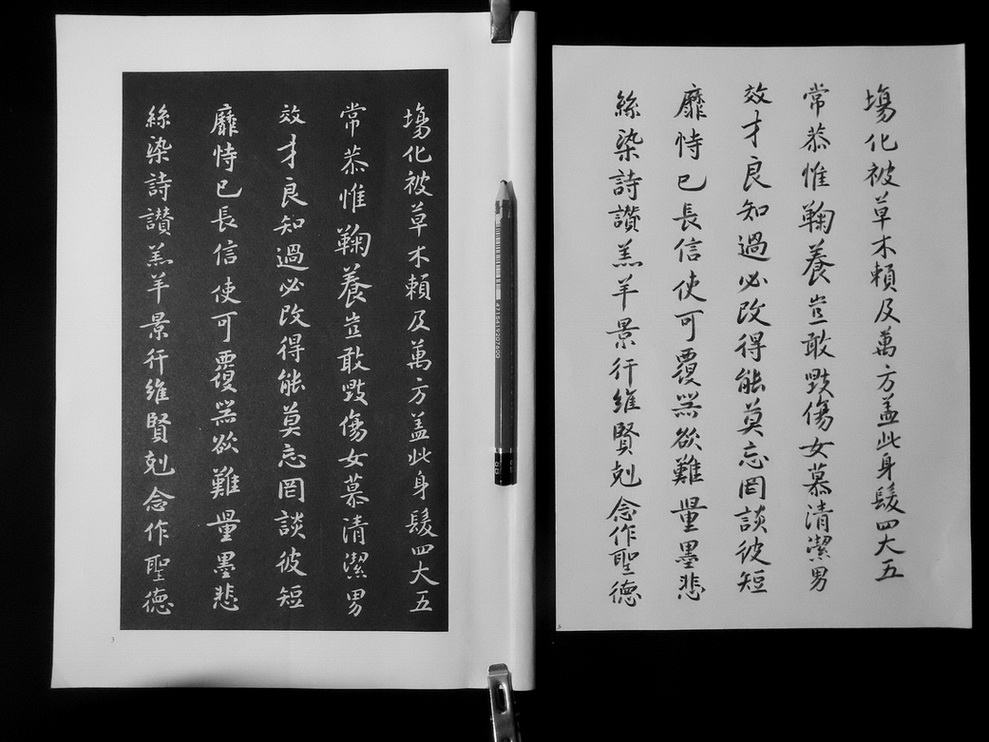 塲化被草木賴及萬方盖此身髮四大五
常恭惟鞠養豈敢毀傷女慕清潔男
效才良知過必改得能莫忘罔談彼短
靡恃已長信使可覆器欲難量墨悲
絲染詩讚羔羊景行維賢剋念作聖德
3
4715419207600
塲化被草木賴及萬方盖此身髮四大五
常恭惟鞠養豈敢毀傷女慕清潔男
效才良知過必改得能莫忘罔談彼短
靡恃已長信使可覆器欲難量墨悲
絲染詩讚羔羊景行維賢剋念作聖德